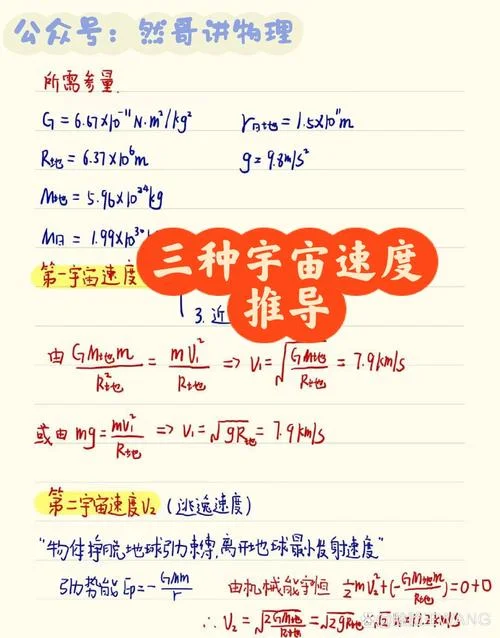 公众号：然哥讲物理
所需参量
G = 6.67×10⁻¹¹ N·m²/kg² r日地 = 1.5×10¹¹m
R地 = 6.37×10⁶m g = 9.8m/s²
M地 = 5.96×10²⁴kg
M日 = 1.99×10³⁰
三种宇宙速度
推导
第一宇宙速度
3. 近
由 GM地m/R地² = mV₁²/R地 => V₁ = √(GM地/R地) = 7.9km/s
或由 mg = mv₁²/R地 => V₁ = √(gR地) = 7.9km/s
第二宇宙速度V₂ (逃逸速度)
"物体挣脱地球引力束缚,离开地球最小发射速度"
引力势能Ep = -GMm/r 由机械能守恒 ½mV₂² + (-GM地m/R地) = 0+0
∴ V₂ = √(2GM地/R地) = √(2gR地)